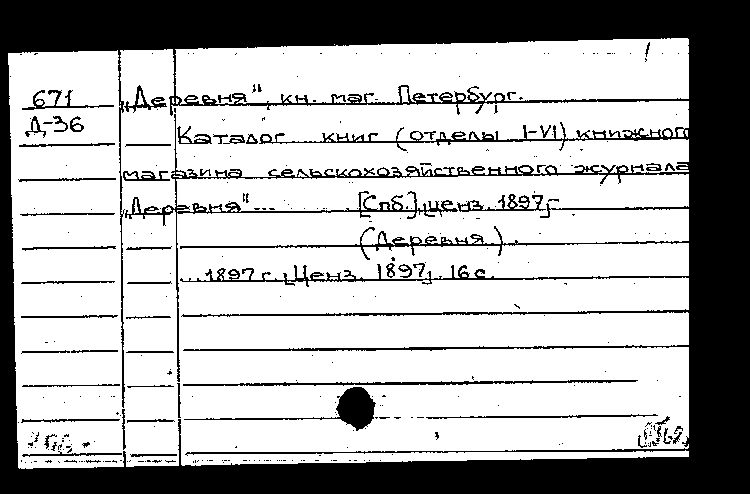 671 „Деревня", кн. маг. Петербург.
Д-36
Каталог книг (отделы I-VI) книжного
магазина сельскохозяйственного журнала
„Деревня"... [Спб.], ценз. 1897 г.
(Деревня.).
...1897 г. [Ценз. 1897]. 16 с.